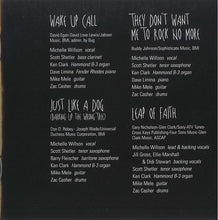 WAKE UP CALL
David Egan-David Love Lewis/Jabsan
Music, BMI, admin. by Bug
Michelle Willson vocal
Scott Shetler bass clarinet
Ken Clark Hammond B-3 organ
Dave Limina Fender Rhodes piano
Mike Mele guitar
Zac Casher drums
JUST LIKE A DOG
(BARKING UP THE WRONG TREE)
Don D. Robey - Joseph Wade/Universal
Duchess Music Corporation, BMI
Michelle Willson vocal
Scott Shetler tenor saxophone
Barry Fleischer baritone saxophone
Ken Clark Hammond B-3 organ
Dave Limina piano
Mike Mele guitar
Zac Casher drums
THEY DON'T WANT
ME TO ROCK NO MORE
Buddy Johnson/Sophisticate Music, BMI
Michelle Willson vocal
Scott Shetler tenor saxophone
Ken Clark Hammond B-3 organ
Dave Limina piano
Mike Mele guitar
Zac Casher drums
LEAP OF FAITH
Gary Nicholson-Glen Clark/Sony-ATV Tunes-
Cross Keys Publishing-Four Sons Music-Glen
Clark Music, ASCAP
Michelle Willson lead & backing vocals
Jill Gross, Ellie Marshall
& Didi Stewart backing vocals
Scott Shetler tenor saxophone
Ken Clark Hammond B-3 organ
Mike Mele guitar
Zac Casher drums